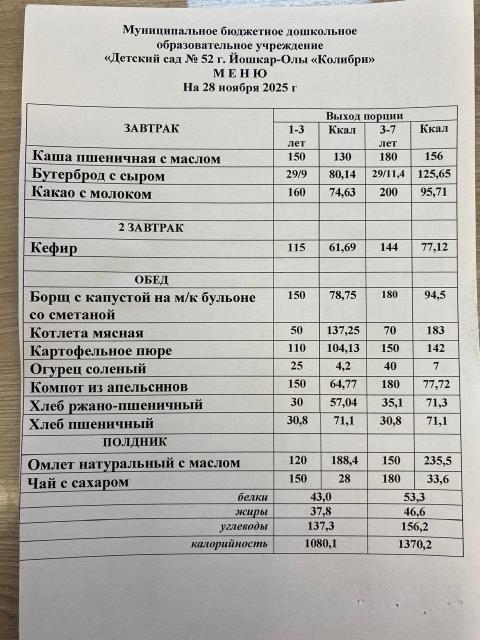 Муниципальное бюджетное дошкольное
образовательное учреждение
«Детский сад № 52 г. Йошкар-Олы «Колибри»
М Е Н Ю
На 28 ноября 2025 г
ЗАВТРАК Выход порции
1-3 лет Ккал 3-7 лет Ккал
Каша пшеничная с маслом 150 130 180 156
Бутерброд с сыром 29/9 80,14 29/11,4 125,65
Какао с молоком 160 74,63 200 95,71
2 ЗАВТРАК
Кефир 115 61,69 144 77,12
ОБЕД
Борщ с капустой на м/к бульоне 150 78,75 180 94,5
со сметаной
Котлета мясная 50 137,25 70 183
Картофельное пюре 110 104,13 150 142
Огурец соленый 25 4,2 40 7
Компот из апельсинов 150 64,77 180 77,72
Хлеб ржано-пшеничный 30 57,04 35,1 71,3
Хлеб пшеничный 30,8 71,1 30,8 71,1
ПОЛДНИК
Омлет натуральный с маслом 120 188,4 150 235,5
Чай с сахаром 150 28 180 33,6
белки 43,0 53,3
жиры 37,8 46,6
углеводы 137,3 156,2
калорийность 1080,1 1370,2